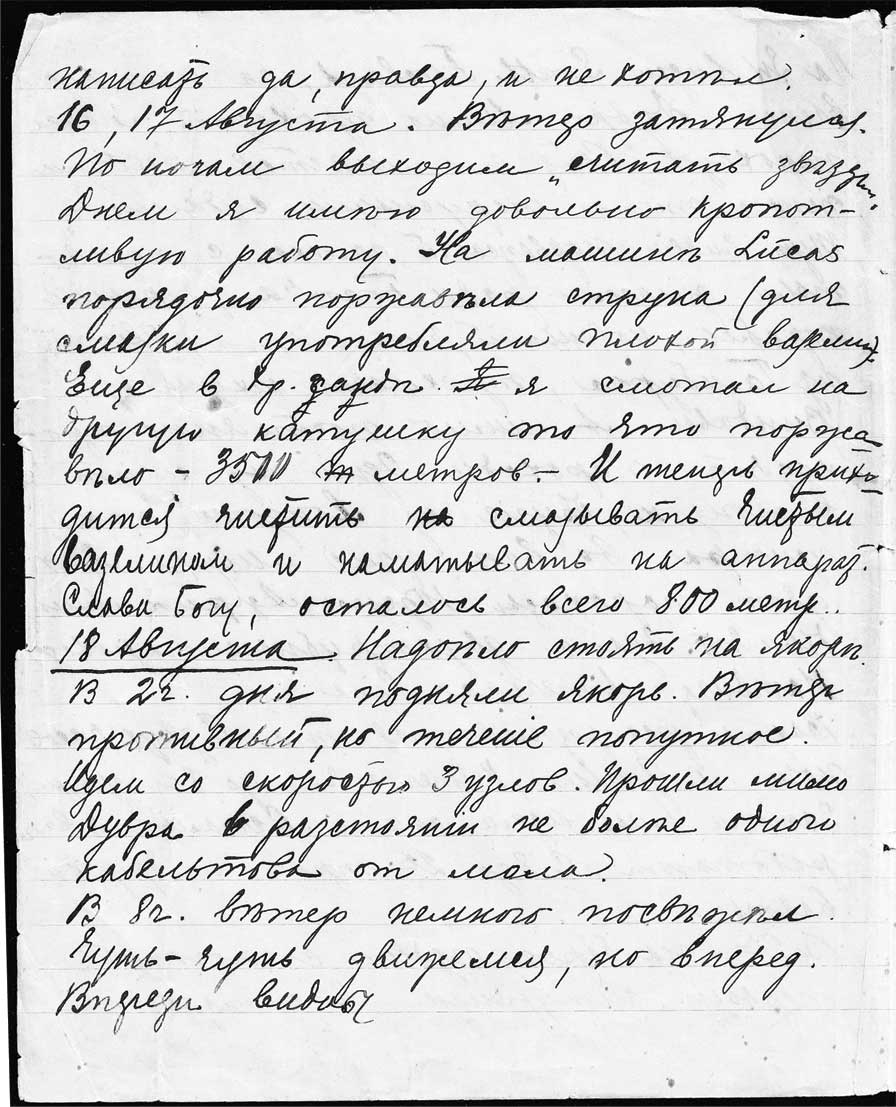 написать да, правда, и не хотѣл.
16, 17 Августа. Вѣтер затянулся.
По ночам выходим „считать звѣзды".
Днем я имѣю довольно кропот-
ливую работу. На машинѣ Lucas
порядочно поржавѣла струна (для
смазки употребляли плохой вазелин).
Еще в я смотал на
другую катушку то что поржа
вѣло – 3500 метров. – И теперь прихо-
дится чистить смазывать чистым
вазелином и наматывать на аппарат.
Слава Богу, осталось всего 800 метр..
18 Августа. Надоѣло стоять на якорѣ.
В 2 ч. дня подняли якорь. Вѣтер
противный, но теченіе попутное.
Идем со скоростью 3 узлов. Прошли мимо
Дувра в разстояніи не болѣе одного
кабельтова от мола.
В 8 ч. вѣтер немного посвѣжѣл.
Чуть-чуть движемся, но вперед.
Впереди видны